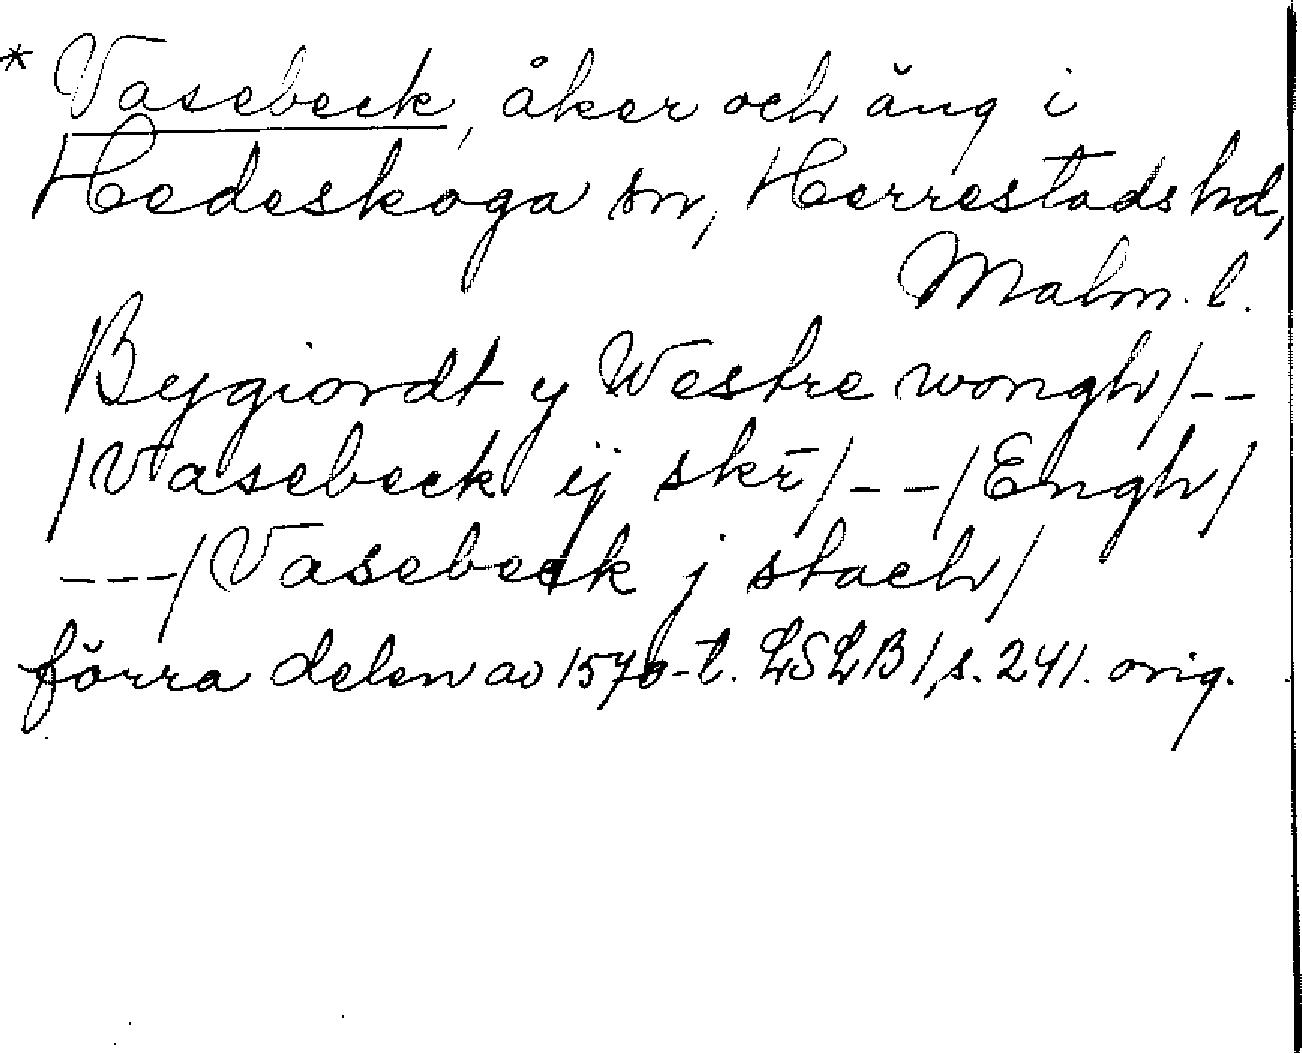 * Vasebeck, åker och äng i
Hedeskoga sn, Herrestads hd,
Malm. l.
Bygiordt y Westre wongh/--
/Vasebeck ij skr̄/--/Engh/
---/Vasebeck j stach/
förra delen av 1570-t. LSLB 1, s. 241. orig.